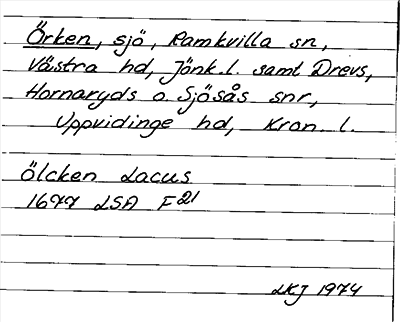 Örken, sjö, Ramkvilla sn,
Västra hd, Jönk. l. samt Drevs,
Hornaryds o. Sjösås snr,
Uppvidinge hd, Kron. l.
Ölcken Lacus
1677 LSA F21
LKJ 1974